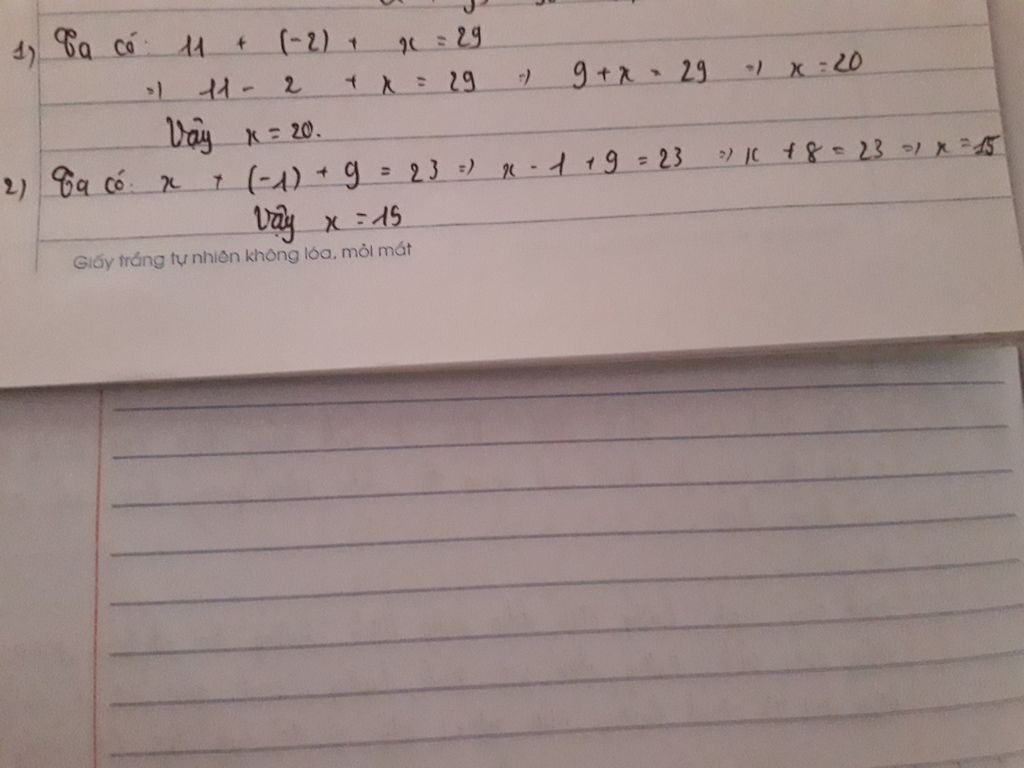 1) Ta có: 11 + (-2) + x = 29
=) 11 - 2 + x = 29 =) 9 + x = 29 =) x = 20
Vậy x = 20.
2) Ta có: x + (-1) + 9 = 23 =) x - 1 + 9 = 23 =) x + 8 = 23 =) x = 15
Vậy x = 15
Giấy trắng tự nhiên không lóa, mỏi mắt